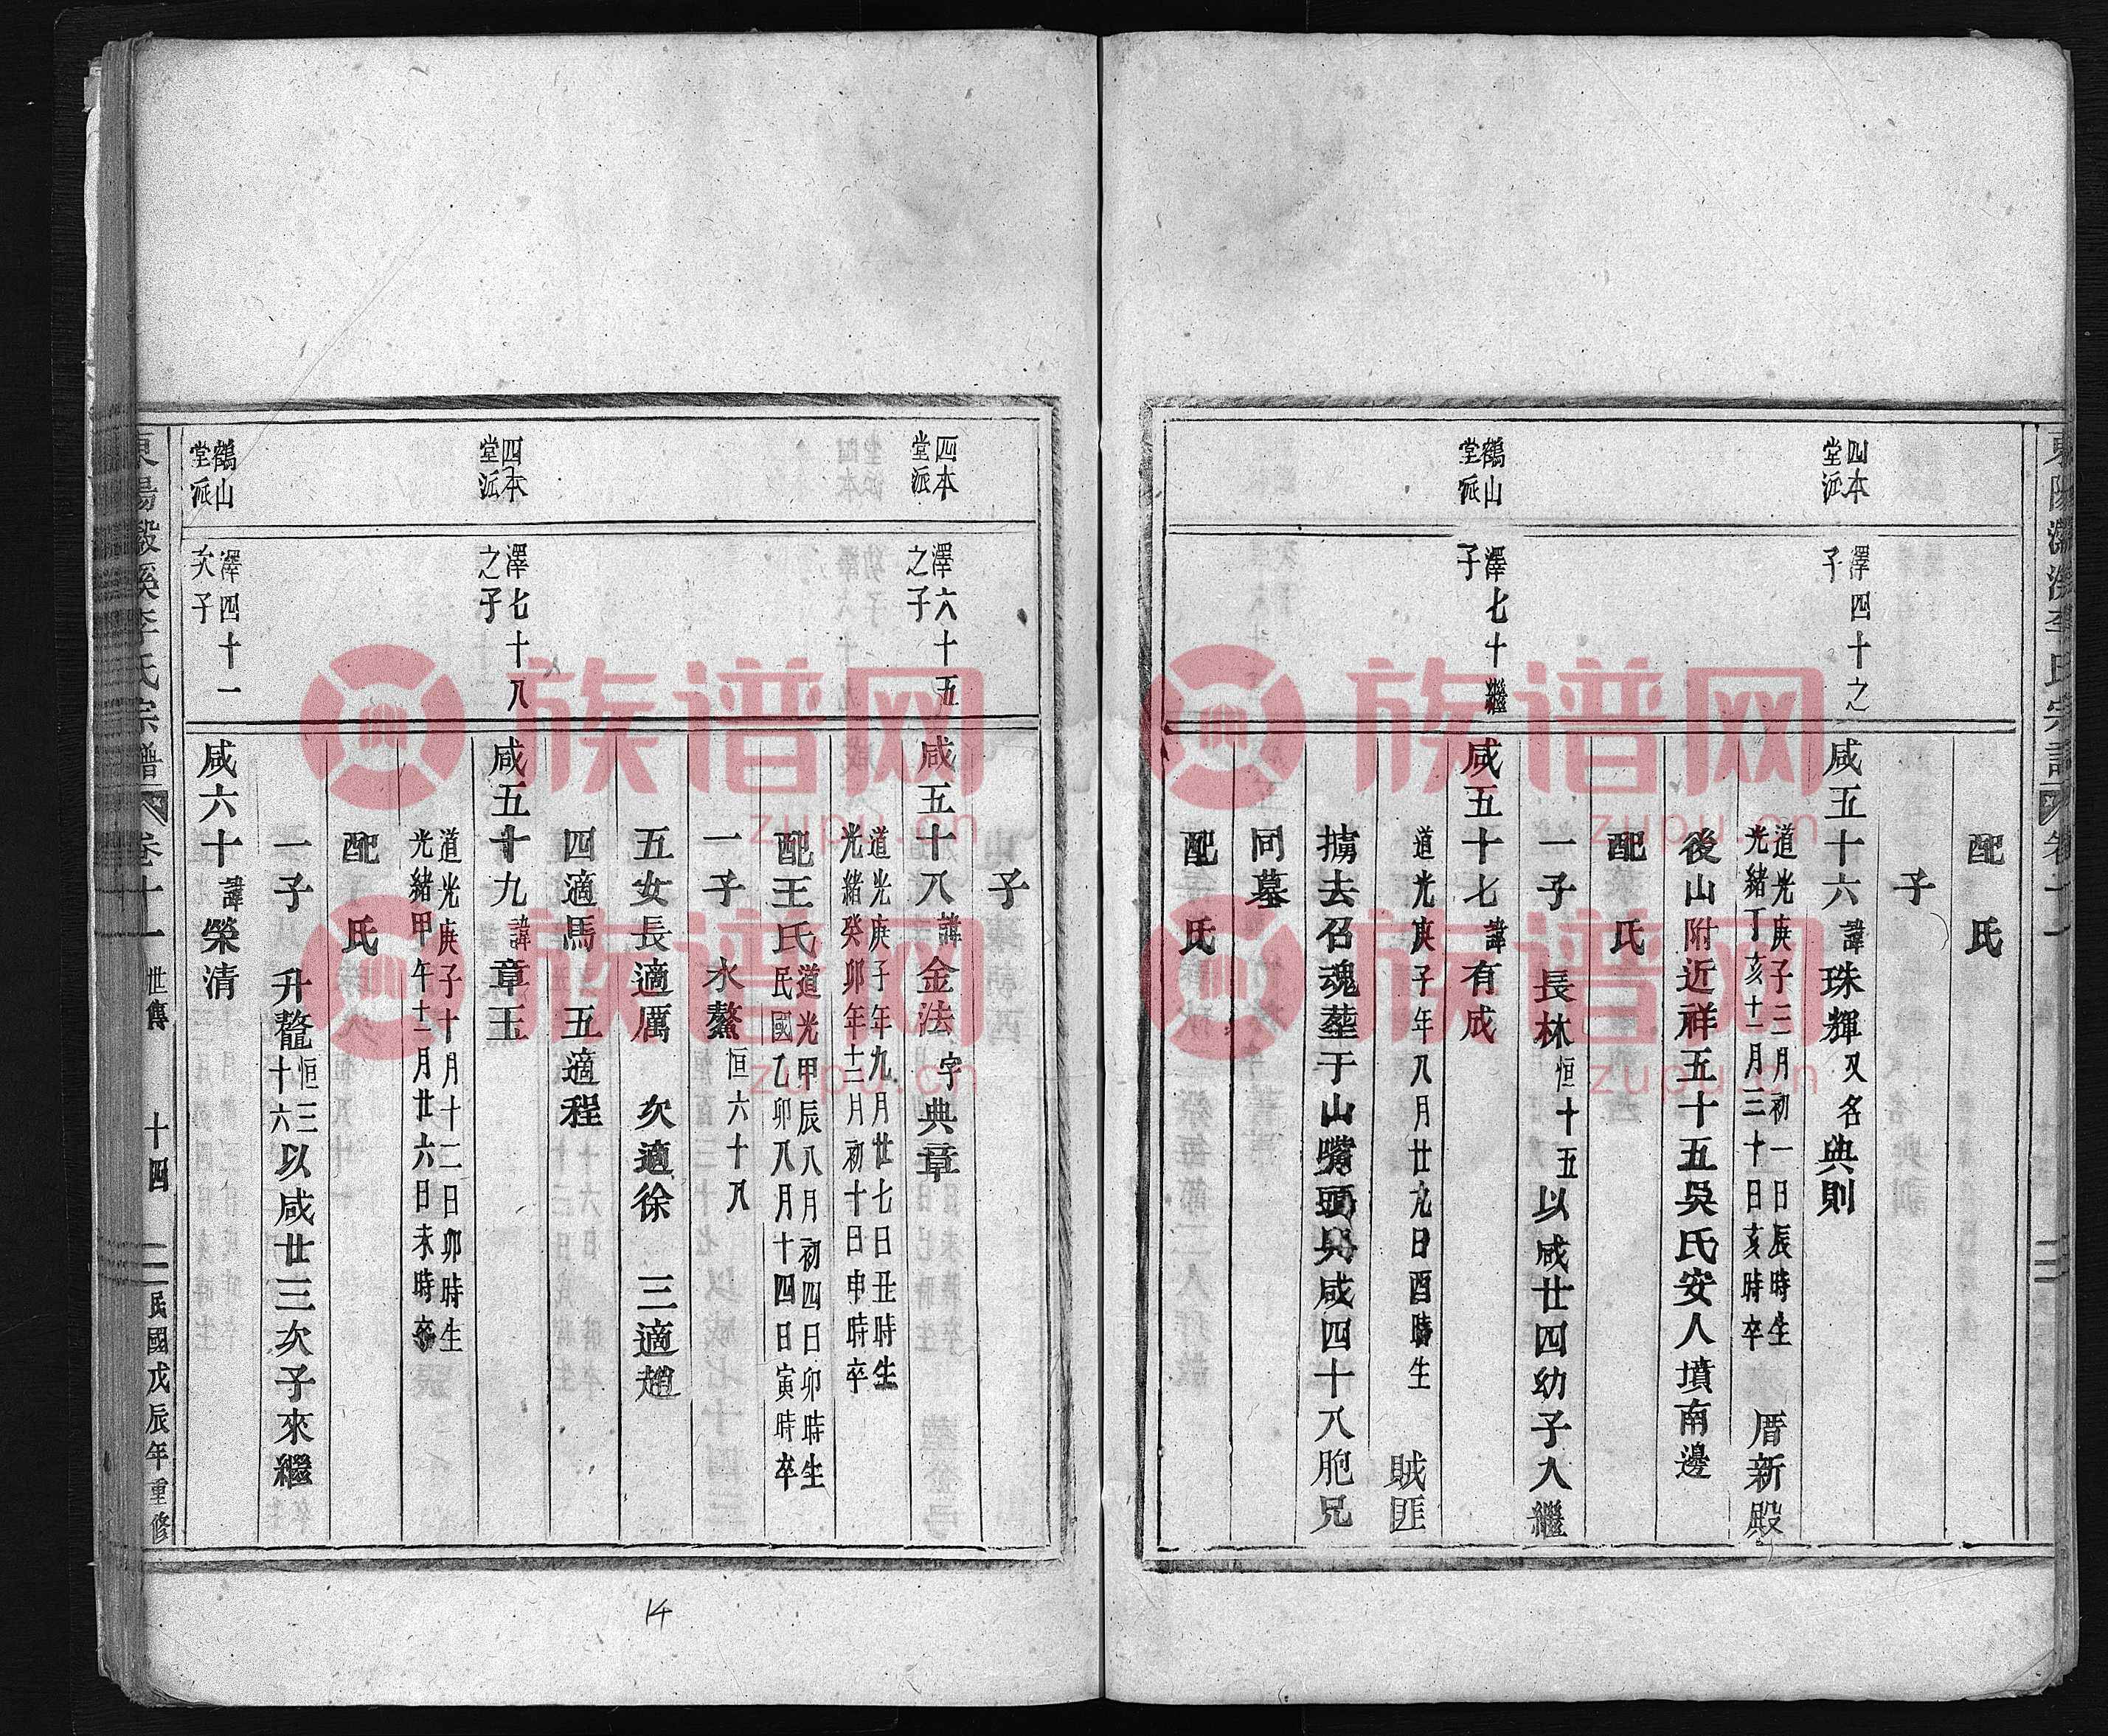 配　氏
子
四本
堂派
澤四十之
子
咸五十六諱珠輝又名典則
道光庚子三月初一日辰時生
光緒丁亥十一月三十日亥時卒
厝新殿
後山附近祥五十五吳氏安人墳南邊
配　氏
一子　長林恒十五以咸廿四幼子入繼
鶴山
堂派
澤七十繼
子
咸五十七諱有成
道光庚子年八月廿九日酉時生　賊匪
擄去召魂塟于山嘴頭與咸四十八胞兄
同墓
配　氏
子
四本
堂派
澤六十五
之子
咸五十八諱金法字典章
道光庚子年九月廿七日丑時生
光緒癸卯年十二月初十日申時卒
配王氏道光甲辰八月初四日卯時生
民國乙卯八月十四日寅時卒
一子　水鰲恒六十八
五女長適厲　次適徐　三適趙
四適馬　五適程
四本
堂派
澤七十八
之子
咸五十九諱章玉
道光庚子十月十二日卯時生
光緒甲午十二月廿六日未時卒
配　氏
一子　升鼇恒三十六以咸廿三次子來繼
鶴山
堂派
澤四十一
次子
咸六十諱榮清
李氏宗譜　卷十一　世傳　十四　民國戊辰年重修
14
族谱网
zupu.cn
族谱网
zupu.cn
族谱网
zupu.cn
族谱网
zupu.cn